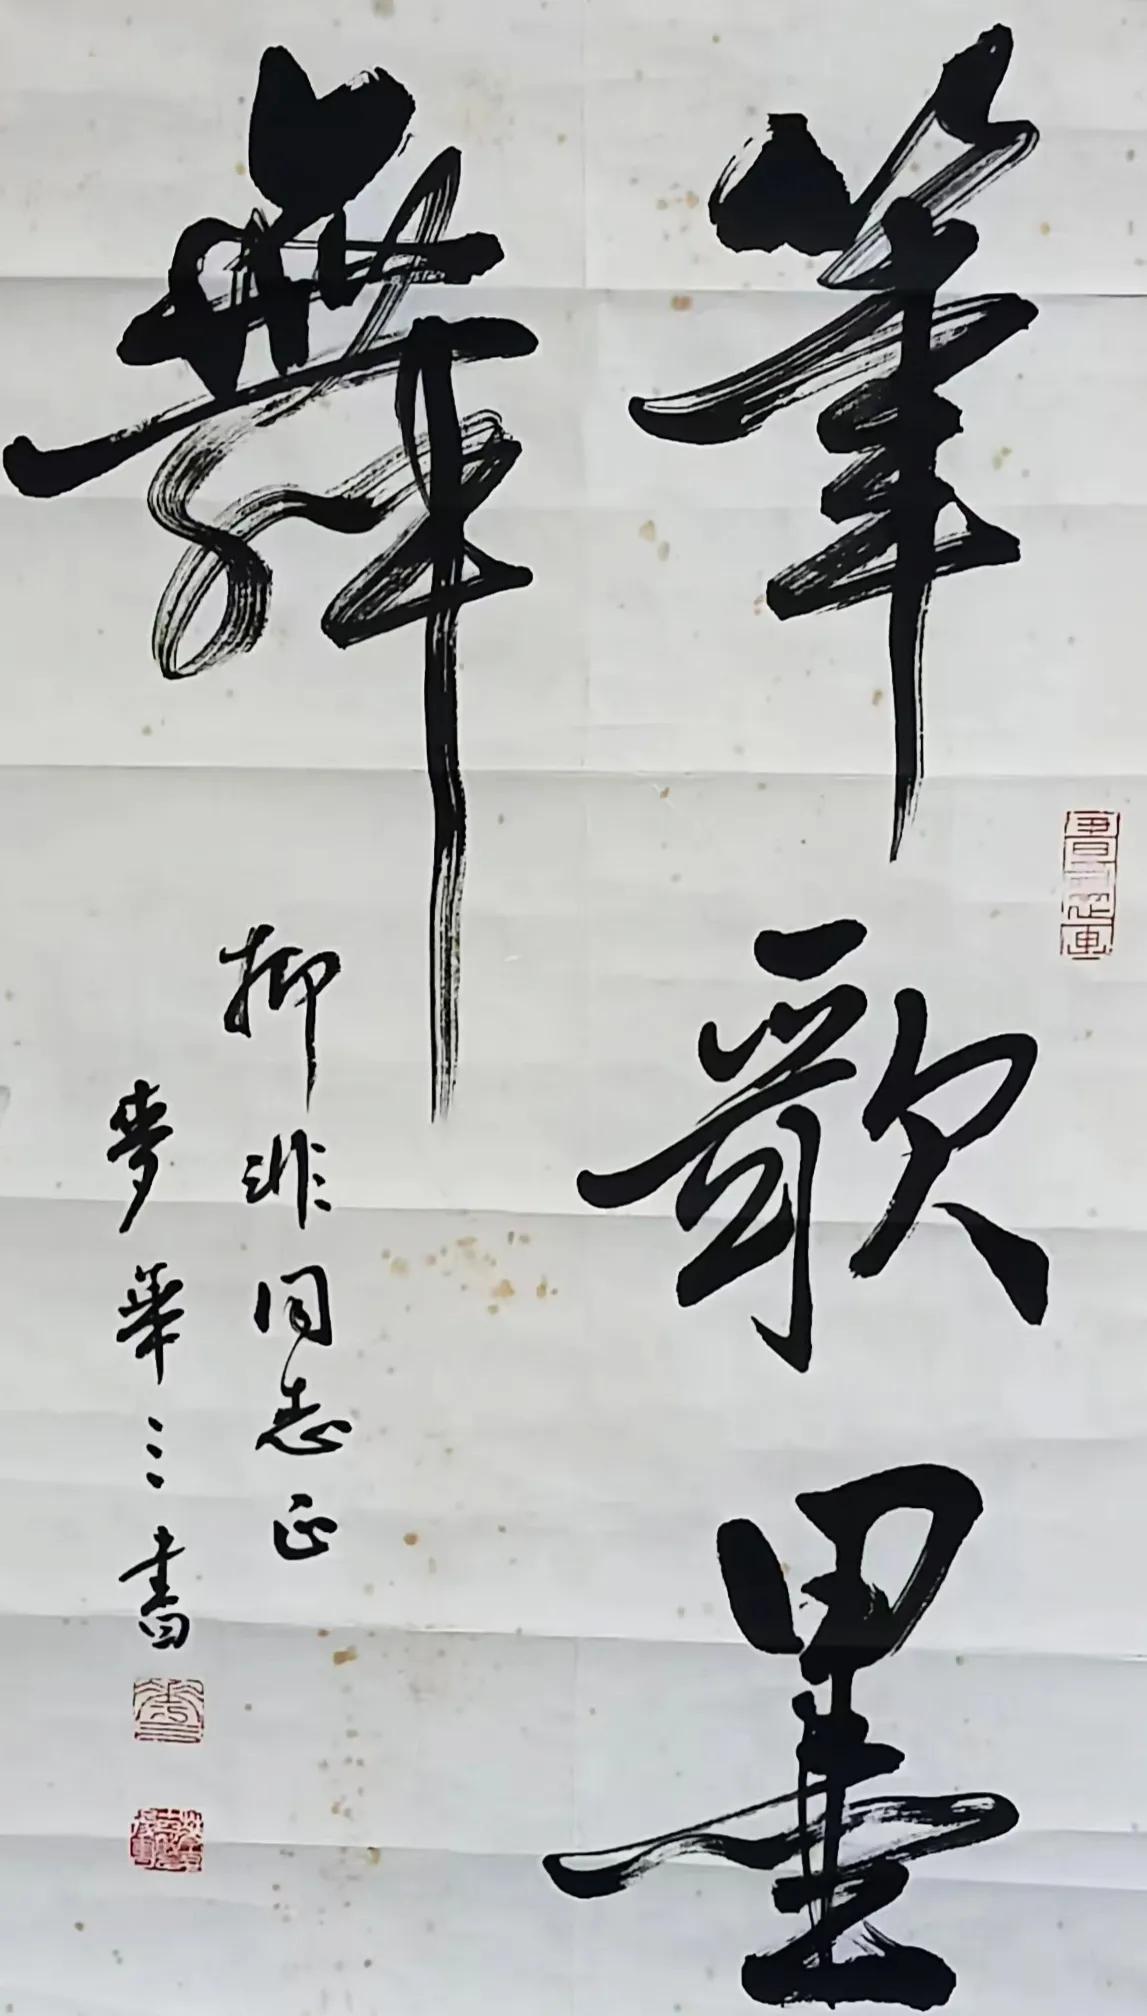 筆歌墨
舞
柳非同志正
夢華三書